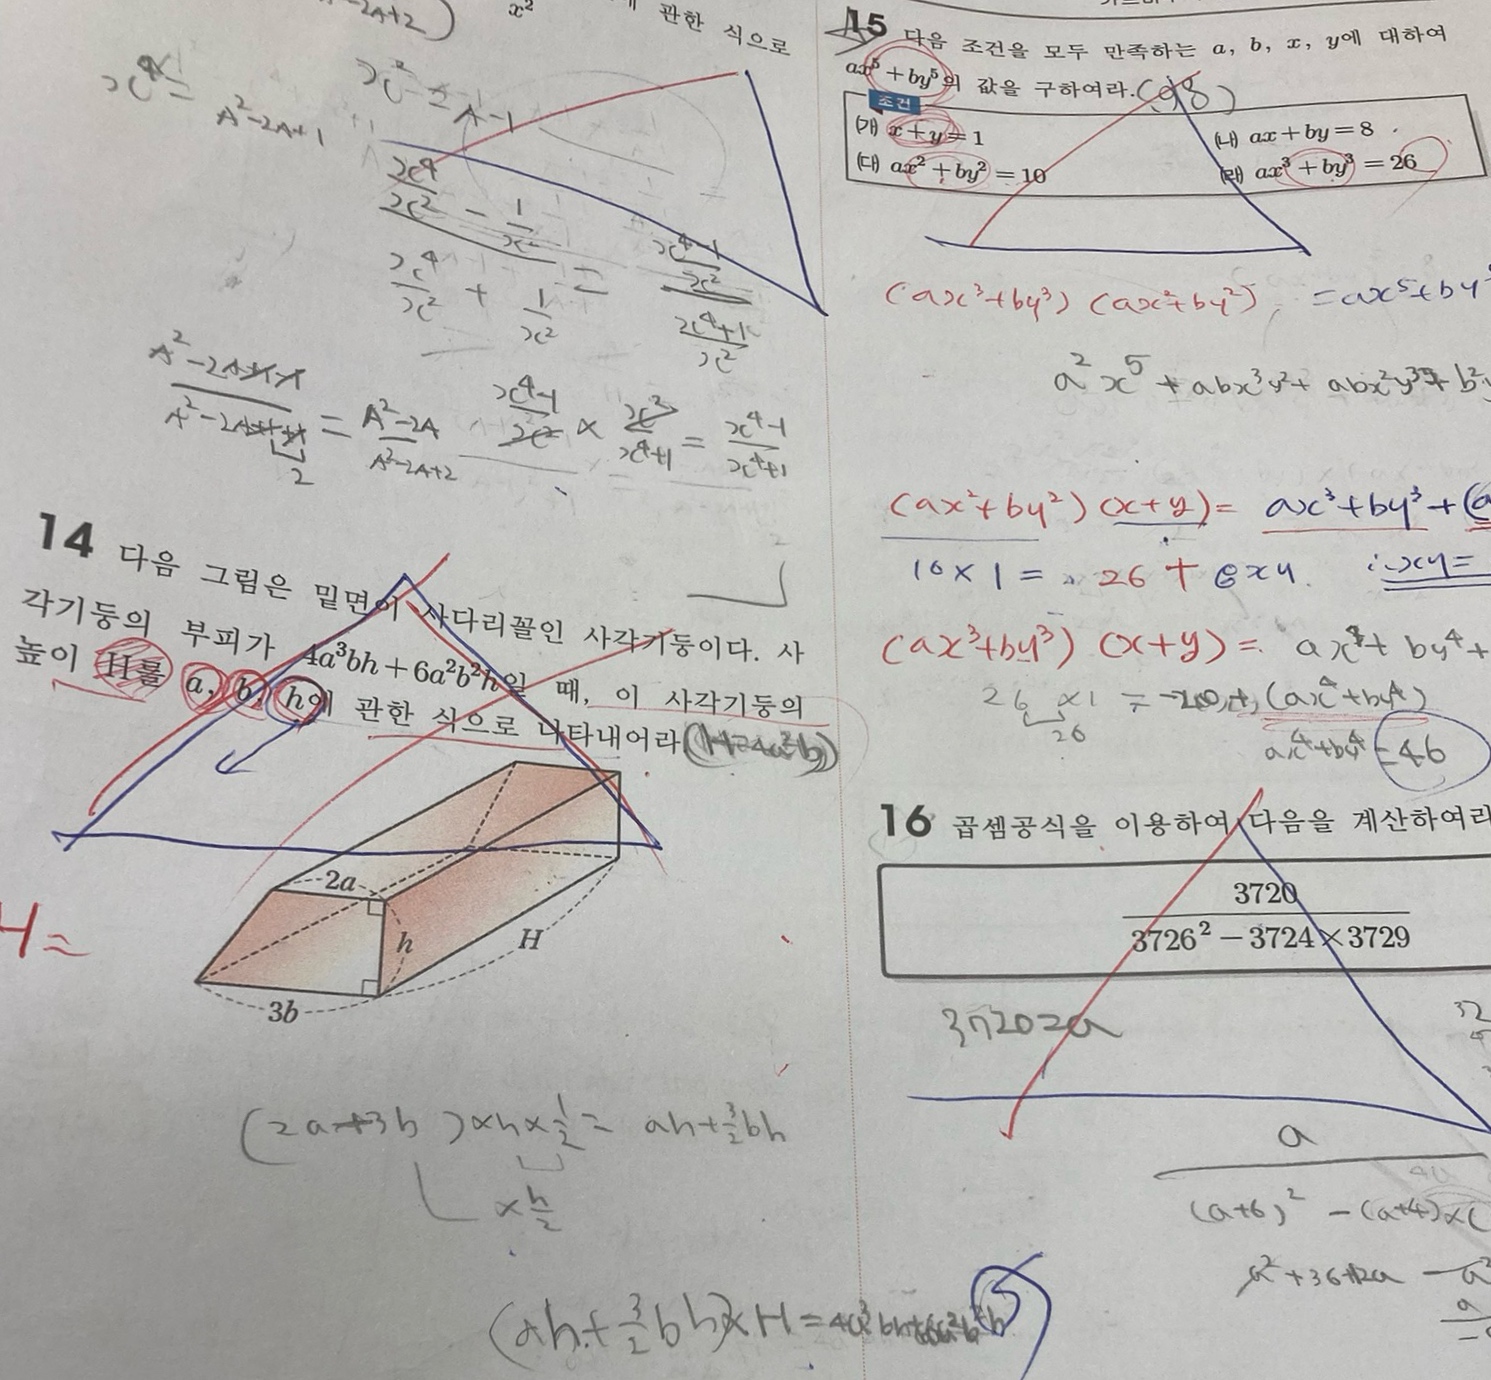 x²
관한 식으로
x² =
A-1
A²-2A+1
x⁴/x² - 1/x² = (x⁴-1)/x²
x⁴/x² + 1/x²
(x⁴+1)/x²
= (A²-2A)/(A²-2A+2)
(x⁴-1)/x² × x²/(x⁴+1) = (x⁴-1)/(x⁴+1)
2
14 다음 그림은 밑면이 사다리꼴인 사각기둥이다. 사
각기둥의 부피가 4a³bh+6a²b²h일 때, 이 사각기둥의
높이 H를 a, b, h에 관한 식으로 나타내어라.
(H=4a²b)
H=
2a
h
H
3b
(2a+3b)×h×1/2 = ah+3/2bh
×h/2
(ah+3/2bh)×H=4a³bh+6a²b²h
15 다음 조건을 모두 만족하는 a, b, x, y에 대하여
ax⁵+by⁵의 값을 구하여라. (98)
조건
㈎ x+y=1 ㈏ ax+by=8
㈐ ax²+by²=10 ㈑ ax³+by³=26
(ax³+by³)(ax²+by²) =ax⁵+by
a²x⁵+abx³y²+abx²y³+b²
(ax²+by²)(x+y)= ax³+by³+
10×1= 26+8xy. ∴xy=
(ax³+by³)(x+y)= ax⁴+by⁴+
26×1 = (ax⁴+by⁴)
26
ax⁴+by⁴=46
16 곱셈공식을 이용하여 다음을 계산하여라
3720
3726²-3724×3729
3720=a
a
(a+6)²-(a+4)×(
a²+36+12a -a²